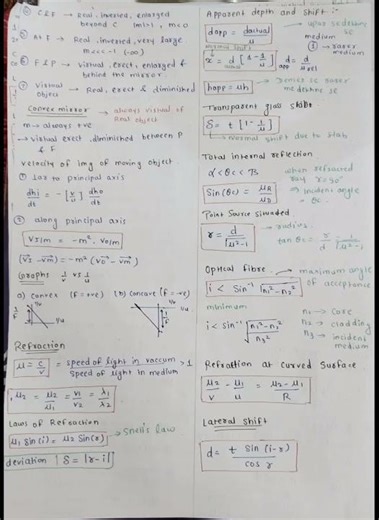 ⑤ C & F → Real, inverted, enlarged
beyond C |m|>1, m<0
⑥ At F → Real, inverted, very large
m<<-1 (-∞)
⑥ F & P → Virtual, erect, enlarged &
behind the mirror.
⑦ Virtual object → Real, erect & diminished
Convex mirror → always virtual of Real object
m → always +ve
→ virtual erect, diminished between P
& F
velocity of img of moving object
① lar to principal axis
dhi/dt = -[v/u] dho/dt
② along principal axis
VI/m = -m². VO/m
(VI - Vm) = -m² (VO - Vm)
Graphs 1/v vs 1/u
a) Convex (F = +ve) (b) Concave (F = -ve)
1/v 1/u 1/F
Refraction
μ = c/v = speed of light in vaccum / Speed of light in medium > 1
₁μ₂ = μ₂/μ₁ = v₁/v₂ = λ₁/λ₂
Laws of Refraction
μ₁ Sin(i) = μ₂ Sin(r) → snell's law
deviation | δ = |r-i|
Apparent depth and shift :-
dapp = dactual/μ
medium
① → rarer medium
x = d [1 - 1/μ]
happ = μh
Transparent glass shift
δ = t [1 - 1/μ]
→ normal shift due to slab
Total internal reflection
Sin(θc) = μR/μD
when refracted
ray r = 90°
⇒ incident angle
= θc
Point Source situaded
r = d/√μ²-1 → radius.
tan θc = r/d = 1/√μ²-1
Optical fibre. → maximum angle
of acceptance
i < Sin⁻¹ √n₁²-n₂²
minimum
i < Sin⁻¹ √n₁²-n₂²/n₃²
n₁ → core
n₂ → cladding
n₃ → incident
medium
Refraction at curved Surface
μ₂/v - μ₁/u = μ₂-μ₁/R
Lateral shift
d = t Sin (i-r)/cos r